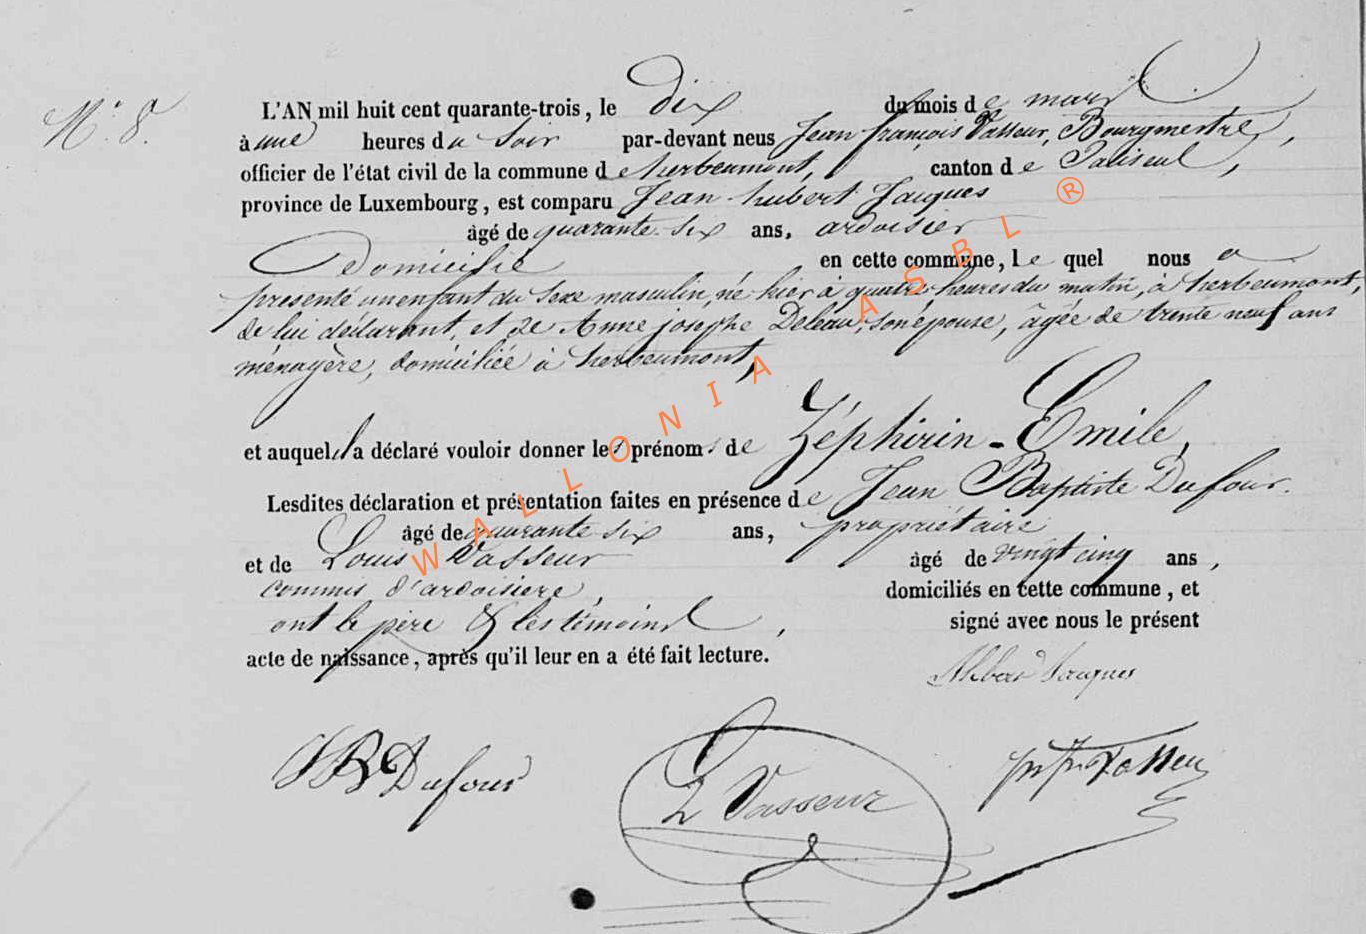 N° 8.
L'AN mil huit cent quarante-trois, le dix du mois de mars
à une heures du soir par-devant nous Jean françois Vasseur, Bourgmestre,
officier de l'état civil de la commune de herbeumont, canton de Paliseul,
province de Luxembourg, est comparu Jean hubert Jacques
âgé de quarante-six ans, ardoisier
domicilié en cette commune, le quel nous a
presenté un enfant du sexe masculin, né hier à quatre heures du matin, à herbeumont,
de lui déclarant, et de Anne josephe Deleau, son épouse, âgée de trente neuf ans
ménagère, domiciliée à herbeumont,
et auquel il a déclaré vouloir donner les prénoms de Zéphirin-Emile,
Lesdites déclaration et présentation faites en présence de Jean Baptiste Dufour.
âgé de quarante six ans, propriétaire
et de Louis Vasseur âgé de vingt cinq ans,
commis d'ardoisiere, domiciliés en cette commune, et
ont le père & les témoins, signé avec nous le présent
acte de naissance, après qu'il leur en a été fait lecture.
Jacques
JB Dufour
L Vasseur
Vasseur
WALLONIA ASBL ®